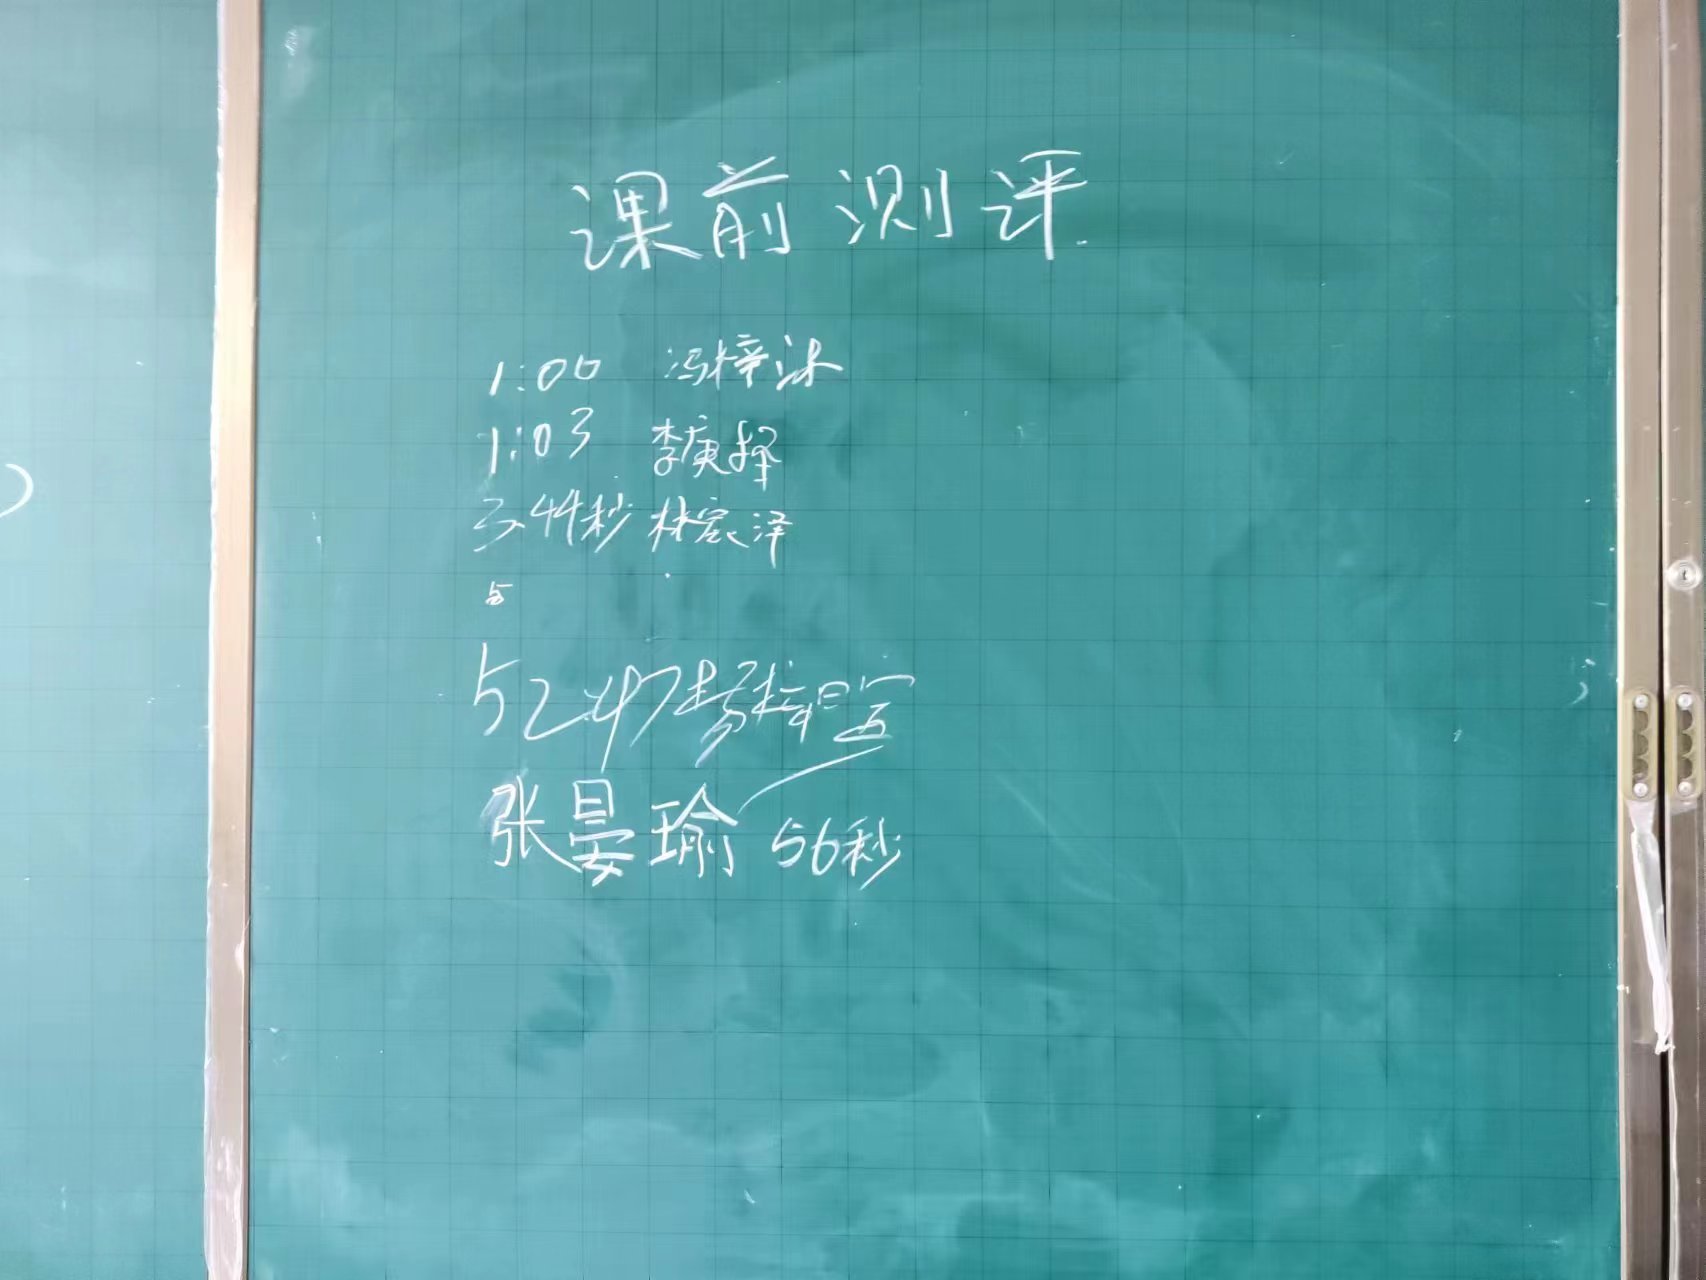 课前测评
1:00 冯梓沐
1:03 李庚择
3.44秒 林宸泽
5
52.47
张晏瑜 56秒